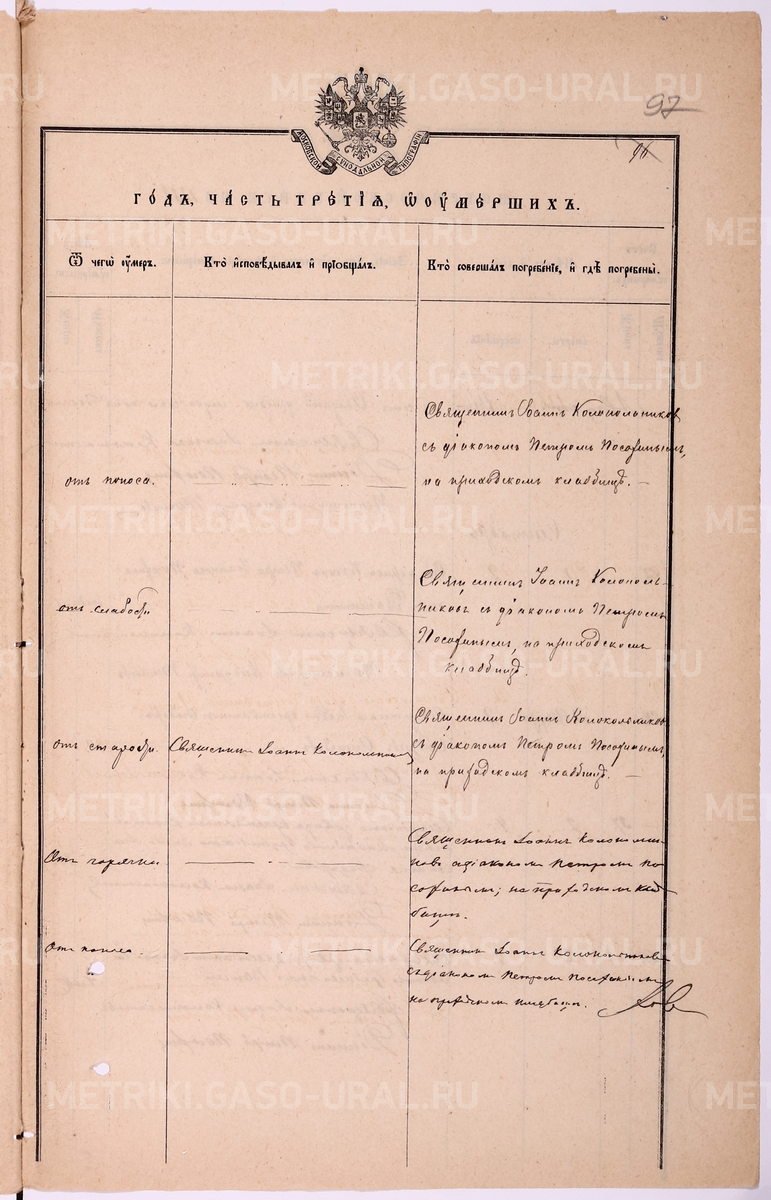 97
96
МОСКОВСКОЙ СѴНОДАЛЬНОЙ ТИПОГРАФІИ
ГО́ДЪ, ЧА́СТЬ ТРЕ́ТІѦ, Ѡ҆ ОУ҆МЕ́РШИХЪ.
Ѿ чегѡ̀ оу҆́меръ.
Кто̀ и҆сповѣ́дывалъ и҆ прїѡбща́лъ.
Кто̀ соверша́лъ погребе́нїе, и҆ гдѣ̀ погребены̀.
отъ поноса.
Священникъ Іоаннъ Колокольниковъ
съ діакономъ Петромъ
на приходскомъ кладбищѣ.
отъ слабости
Священникъ Іоаннъ Коло‍коль-
никовъ съ діакономъ Петромъ
на приходскомъ
кладбищѣ.
отъ старости.
Священникъ Іоаннъ Колокольниковъ
Священникъ Іоаннъ Колокольниковъ
съ діакономъ Петромъ
на приходскомъ кладбищѣ.
Отъ горячки
Священникъ Іоаннъ Колокольни-
ковъ съ діакономъ Петромъ
на приходскомъ клад-
бищѣ.
Отъ поноса.
Священникъ Іоаннъ Колокольниковъ
съ діакономъ Петромъ
на приходскомъ кладбищѣ.
METRIKI.GASO-URAL.RU